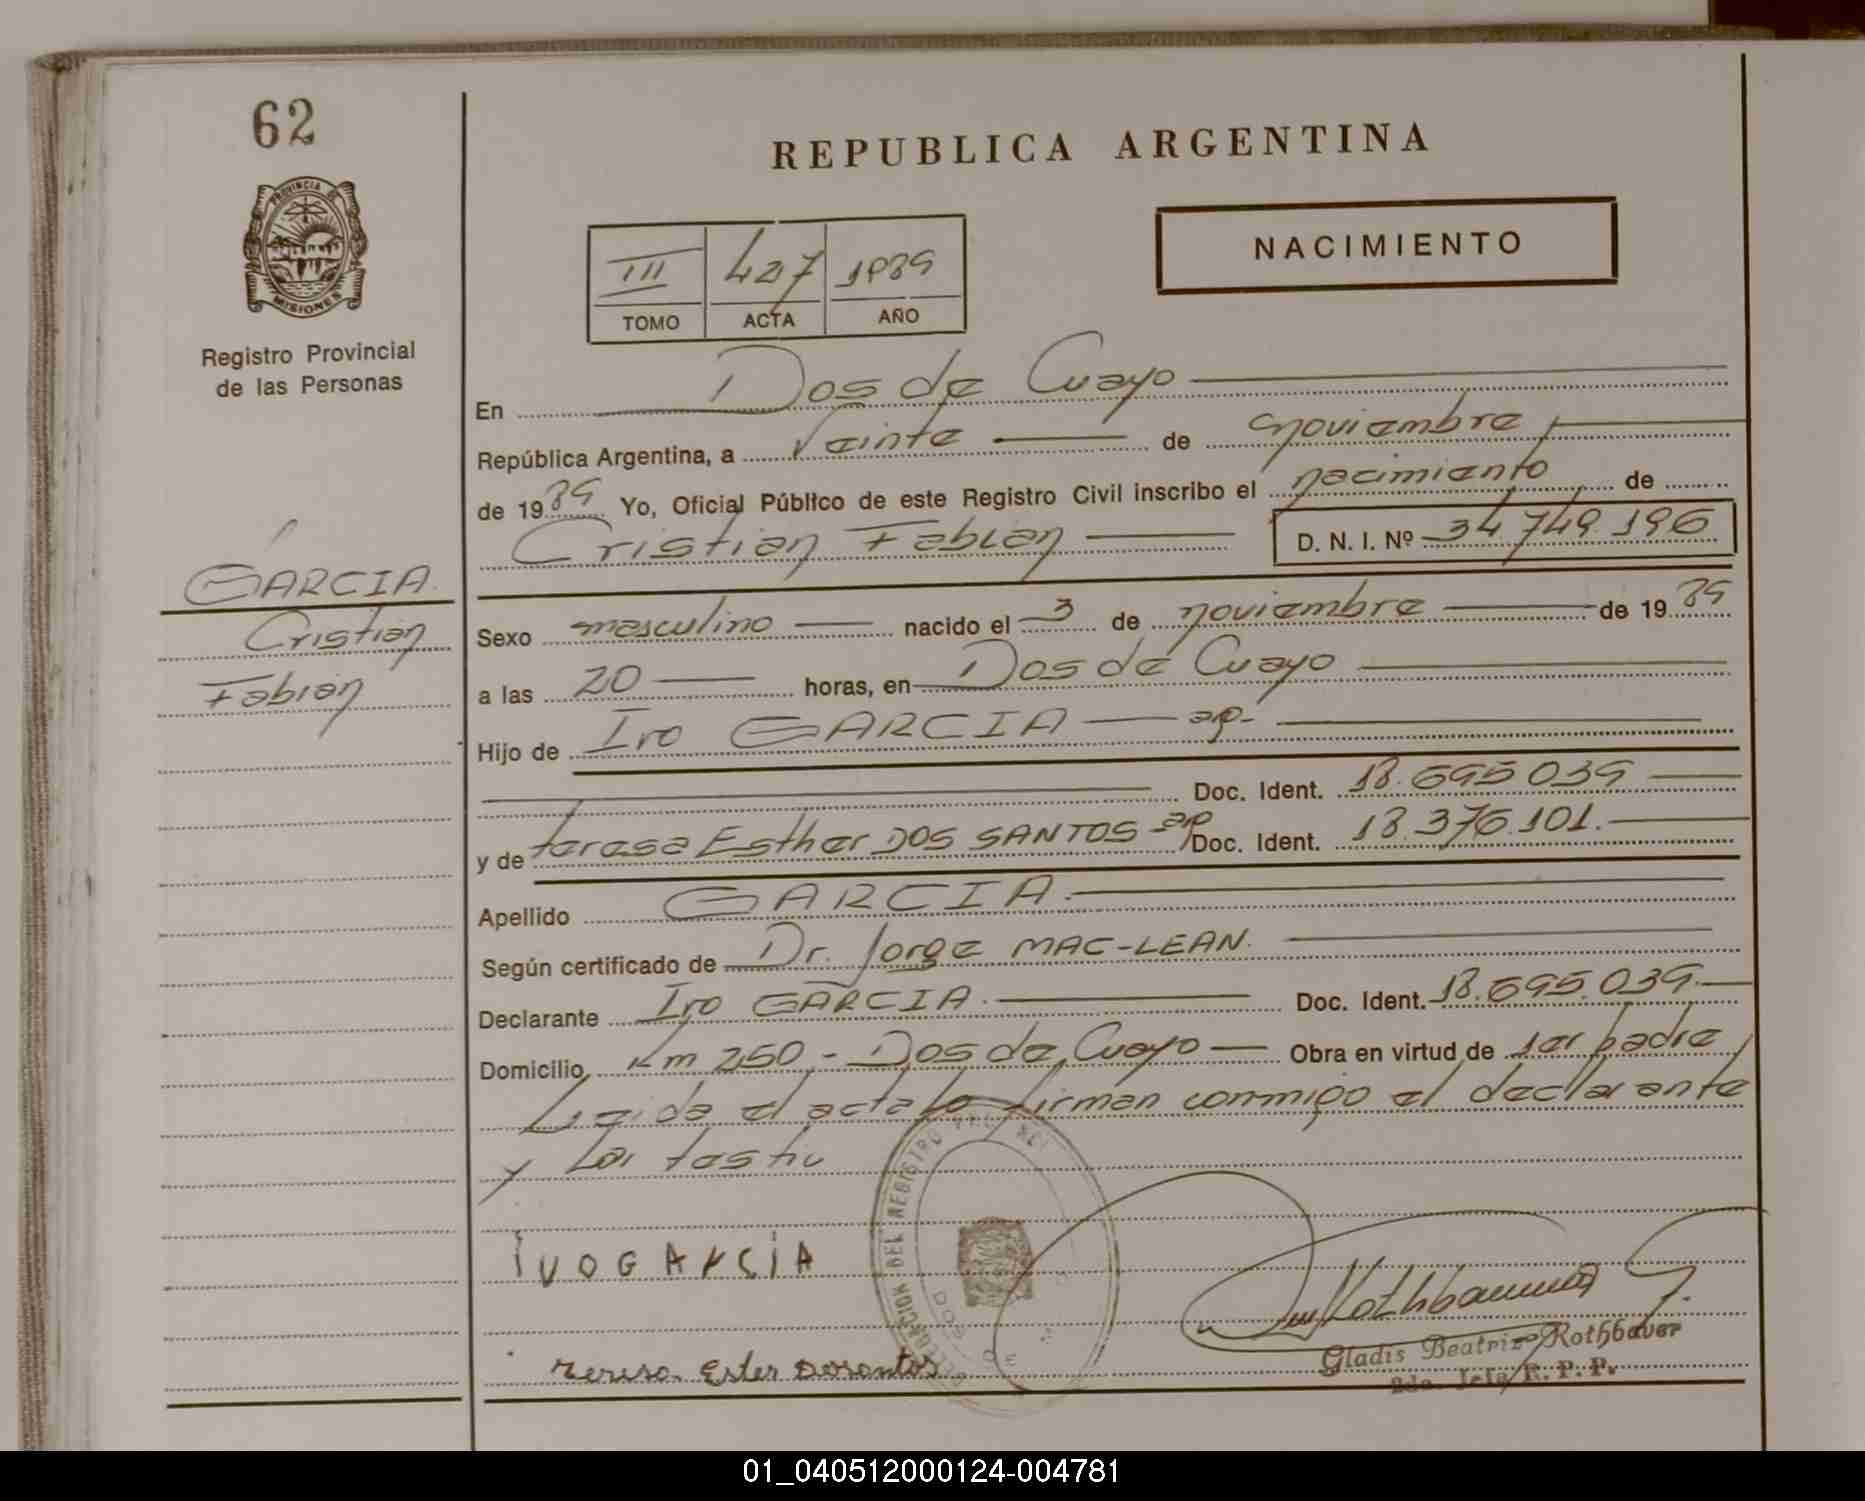 62
PROVINCIA DE
MISIONES
Registro Provincial
de las Personas
REPUBLICA ARGENTINA
NACIMIENTO
III 427 1989
TOMO ACTA AÑO
En Dos de Cuayo
República Argentina, a Veinte de noviembre
de 1989 Yo, Oficial Público de este Registro Civil inscribo el nacimiento de
Cristian Fabian D. N. I. Nº 34.749.196
GARCIA.
Cristian
Fabian
Sexo masculino nacido el 3 de noviembre de 1989
a las 20 horas, en Dos de Cuayo
Hijo de Ivo GARCIA ap-
Doc. Ident. 18.695.039
y de teresa Esther DOS SANTOS ap Doc. Ident. 18.376.101.
Apellido GARCIA.
Según certificado de Dr. Jorge MAC-LEAN.
Declarante Ivo GARCIA. Doc. Ident. 18.695.039.
Domicilio Km 250 - Dos de Cuayo Obra en virtud de ser padre
Leida el acta la firman conmigo el declarante
y
IVO GArCiA
DELEGACION DEL REGISTRO
DOS DE
Rothbauer G.
Teresa. Ester Dosantos
Gladis Beatriz Rothbauer
2da. Jefa R. P. P.
01_040512000124-004781